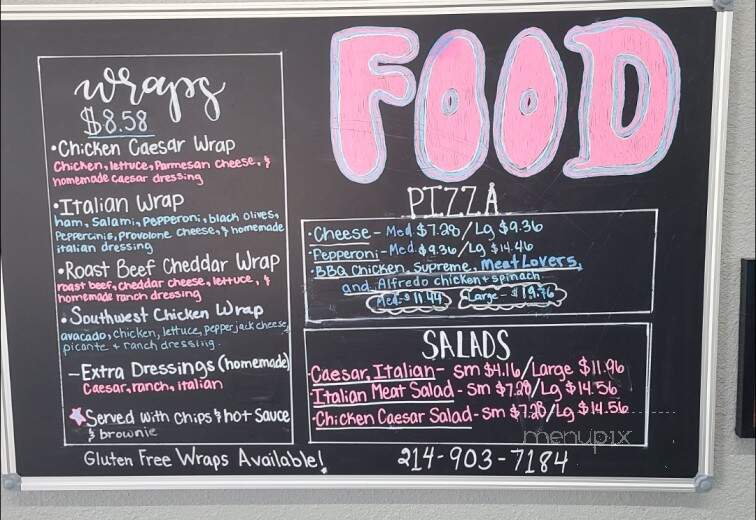 FOOD
wraps
$8.58
•Chicken Caesar Wrap
Chicken, lettuce, Parmesan cheese, &
homemade caesar dressing
•Italian Wrap
ham, Salami, Pepperoni, black olives,
Peppercinis, Provolone cheese, & homemade
italian dressing
•Roast Beef Cheddar Wrap
roast beef, cheddar cheese, lettuce, &
homemade ranch dressing
•Southwest Chicken Wrap
avacado, chicken, lettuce, pepper jack cheese,
picante + ranch dressing.
-Extra Dressings (homemade)
Caesar, ranch, italian
Served with chips & hot sauce
& brownie
Gluten Free Wraps Available!
PIZZA
•Cheese - Med $7.28/Lg $9.36
•Pepperoni - Med. $9.36/Lg $14.46
•BBQ Chicken, Supreme, Meat Lovers,
and Alfredo chicken + spinach
Med-$11.44 Large-$19.76
SALADS
•Caesar, Italian - sm $4.16/Large $11.96
•Italian Meat Salad - Sm $7.28/Lg $14.56
•Chicken Caesar Salad - Sm $7.28/Lg $14.56
menupix
214-903-7184